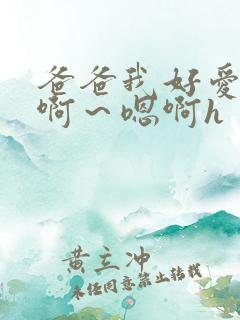 爸爸我好爱
啊～嗯啊h
黄立冲
未经同意禁止转载